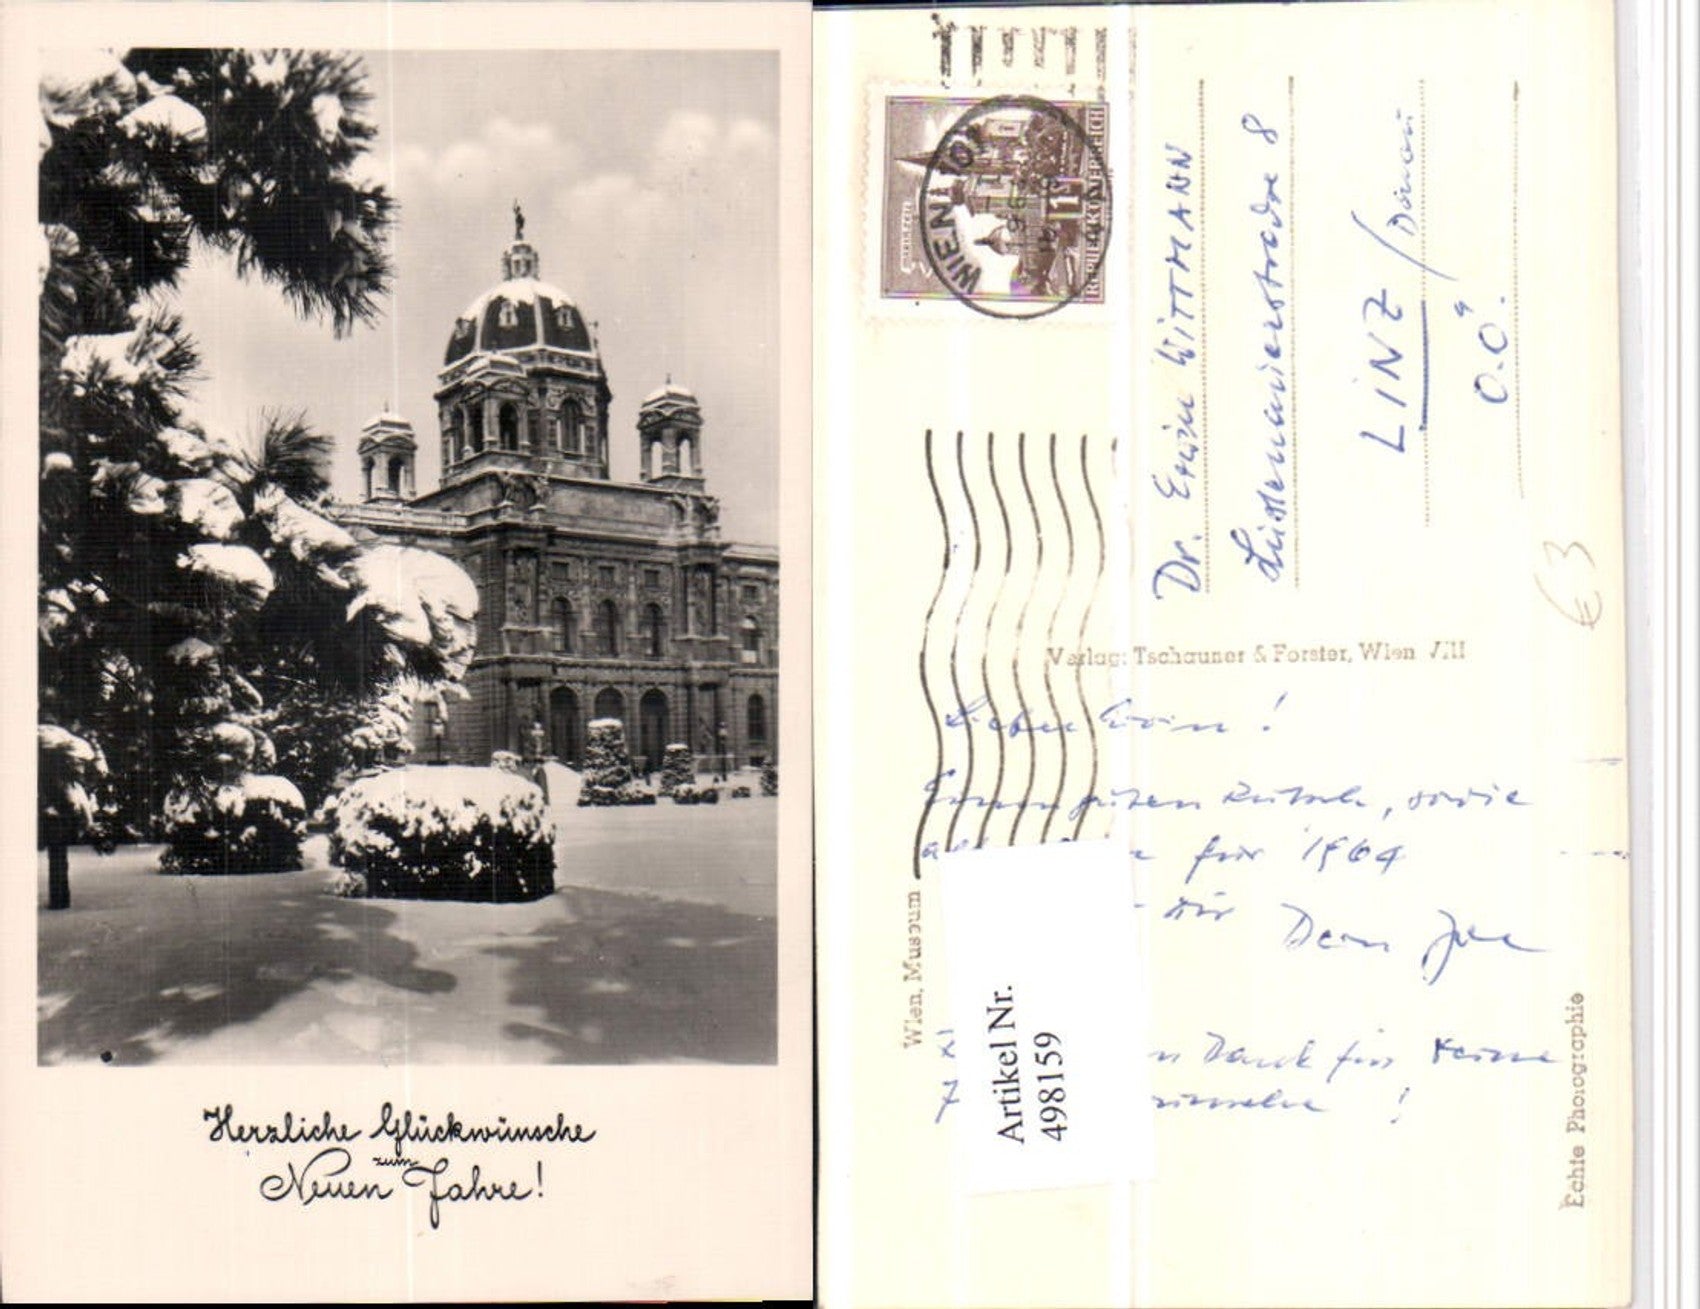 Herzliche Glückwünsche
zum
Neuen Jahre!
WIEN 101
REPUBLIK ÖSTERREICH
MARIAZELL
1
Dr. Erwin WITTMANN
8
LINZ / Donau
O.Ö.
Verlag: Tschauner & Forster, Wien VIII
Lieber Erwin!
guten Rutsch, sowie
für 1964
Dir Dein
Dank für Deine
!
Wien, Museum
Artikel Nr.
498159
Echte Photographie
€ 3